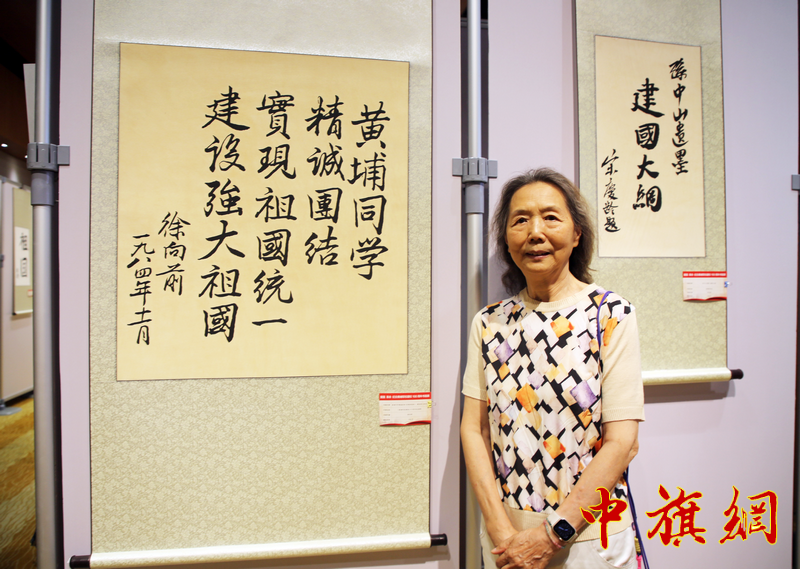 黄埔同学
精誠團结
實現祖國統一
建设強大祖國
徐向前
一九八四年十一月
孫中山遺墨
建國大綱
宋慶齡題
中旗網